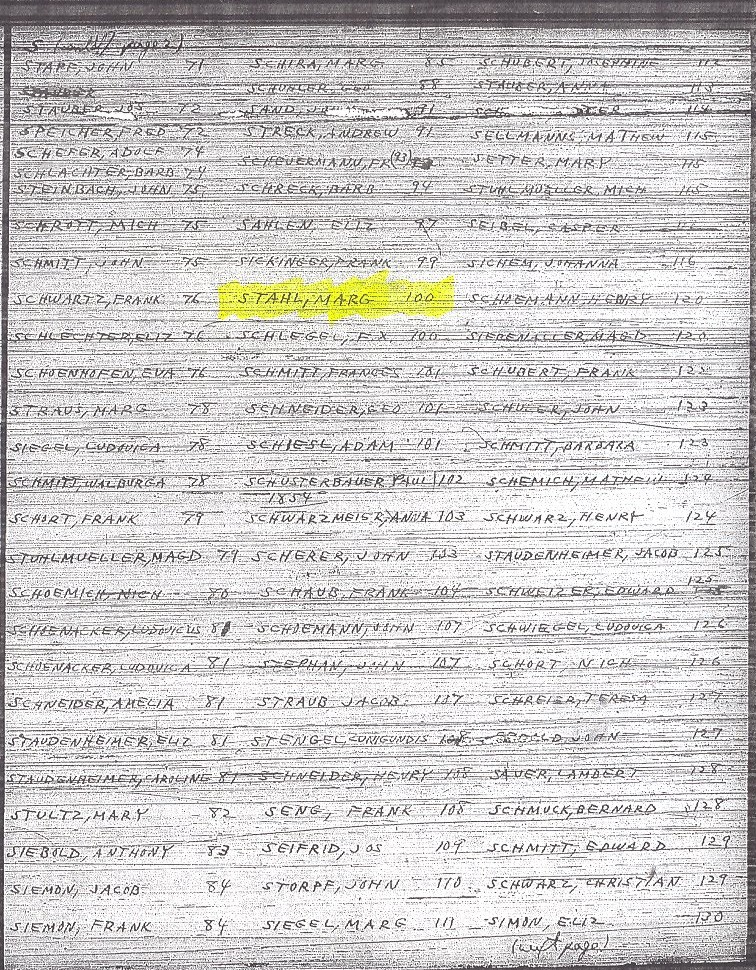 S (                page 2)
STAPF, JOHN 71 SCHIRA, MARG 85 SCHUBERT, JOSEPHINE 112
STAUBER SCHUHLER, GEO 88 STAUBER, ANNA 113
STAUBER JOS 72 SAND, 91 114
SPEICHER, FRED 72 STRECK, ANDREW 91 SELLMANNS, MATHEW 115
SCHEFER, ADOLF 74
SCHEUERMANN, FR (93) SETTER, MARY 115
SCHLACHTER, BARB 74
STEINBACH, JOHN 75 SCHRECK, BARB 94 STUHLMUELLER, MICH 115
SCHROTT, MICH 75 SAHLEN, ELIZ 97 SEIBEL, CASPER
SCHMITT, JOHN 75 SICKINGER, FRANK 99 SICHEM, JOHANNA 116
SCHWARTZ, FRANK 76 STAHL, MARG 100 SCHOEMANN, HENRY 120
SCHLECHTER, ELIZ 76 SCHLEGEL, F.X. 100 SIEBENALLER, MAGD 120
SCHOENHOFEN, EVA 76 SCHMITT, FRANCES 101 SCHUBERT, FRANK 122
STRAUS, MARG 78 SCHNEIDER, GEO 101 SCHULER, JOHN 123
SIEGEL, LUDOVICA 78 SCHIESL, ADAM 101 SCHMITT, BARBARA 123
SCHMITT, WALBURGA 78 SCHUSTERBAUER PAUL 102 SCHEMICH, MATHEW 124
1854
SCHORT, FRANK 79 SCHWARZMEIER, ANNA 103 SCHWARZ, HENRY 124
STUHLMUELLER, MAGD 79 SCHERER, JOHN 103 STAUDENHEIMER, JACOB 125
SCHOEMICH, NICH 80 SCHAUB, FRANK 104 SCHWEIZER, EDWARD 125
SCHOENACKER, LUDOVICUS 81 SCHOEMANN, JOHN 107 SCHWIEGEL, LUDOVICA 126
SCHOENACKER, LUDOVICA 81 STEPHAN, JOHN 107 SCHORT, NICH 126
SCHNEIDER, AMELIA 81 STRAUB JACOB 107 SCHREIER, TERESA 127
STAUDENHEIMER, ELIZ 81 STENGEL, CUNIGUNDIS 108 JOHN 127
STAUDENHEIMER, CAROLINE 81 SCHNEIDER, HENRY 108 SAUER, LAMBERT 128
STULTZ, MARY 82 SENG, FRANK 108 SCHMUCK, BERNARD 128
SIEBOLD, ANTHONY 83 SEIFRID, JOS 109 SCHMITT, EDWARD 129
SIEMON, JACOB 84 STORPF, JOHN 110 SCHWARZ, CHRISTIAN 129
SIEMON, FRANK 84 SIEGEL, MARG 111 SIMON, ELIZ 130
(next page)